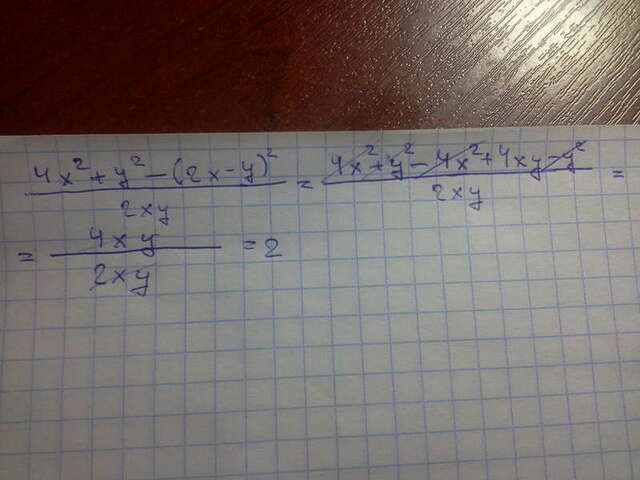 4x²+y²-(2x-y)²/2xy = 4x²+y²-4x²+4xy-y²/2xy =
= 4xy/2xy = 2